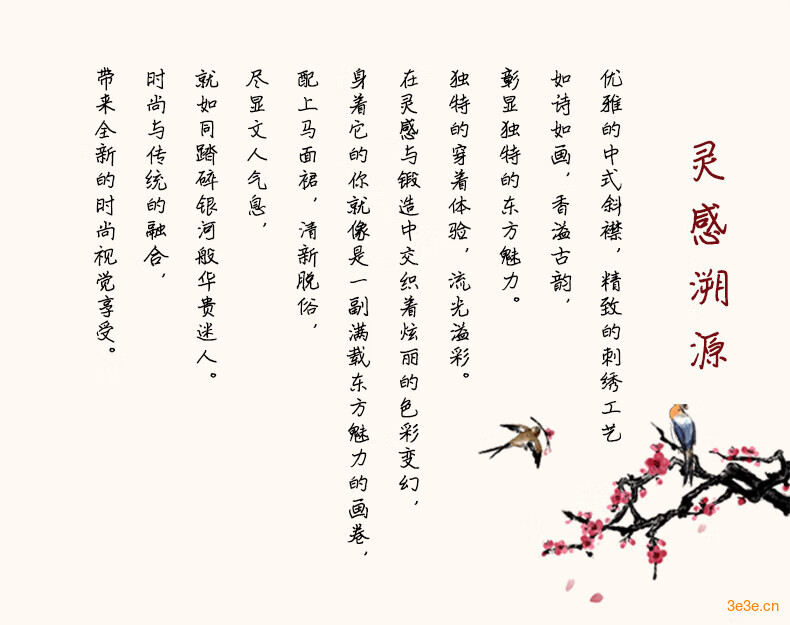 灵感溯源
优雅的中式斜襟，精致的刺绣工艺
如诗如画，香溢古韵，
彰显独特的东方魅力。
独特的穿着体验，流光溢彩。
在灵感与锻造中交织着炫丽的色彩变幻，
身着它的你就像是一副满载东方魅力的画卷，
配上马面裙，清新脱俗，
尽显文人气息，
就如同踏碎银河般华贵迷人。
时尚与传统的融合，
带来全新的时尚视觉享受。
3e3e.cn